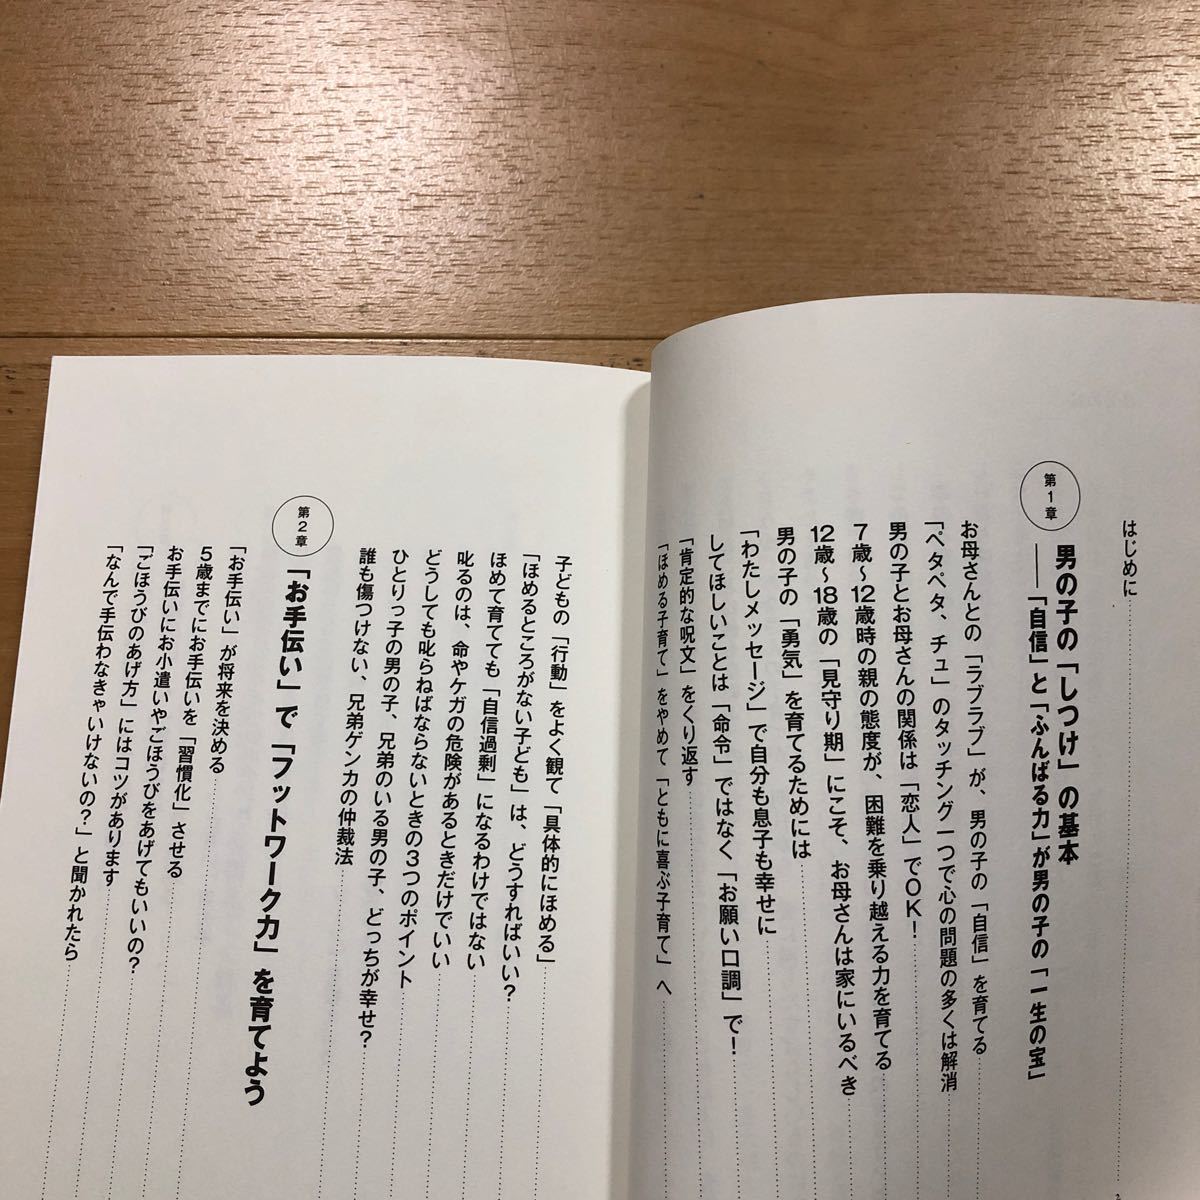 はじめに
第1章
男の子の「しつけ」の基本
――「自信」と「ふんばる力」が男の子の「一生の宝」
お母さんとの「ラブラブ」が、男の子の「自信」を育てる
「ペタペタ、チュ」のタッチング一つで心の問題の多くは解消
男の子とお母さんの関係は「恋人」でOK!
7歳〜12歳時の親の態度が、困難を乗り越える力を育てる
12歳〜18歳の「見守り期」にこそ、お母さんは家にいるべき
男の子の「勇気」を育てるためには
「わたしメッセージ」で自分も息子も幸せに
してほしいことは「命令」ではなく「お願い口調」で!
「肯定的な呪文」をくり返す
「ほめる子育て」をやめて「ともに喜ぶ子育て」へ
子どもの「行動」をよく観て「具体的にほめる」
「ほめるところがない子ども」は、どうすればいい?
ほめて育てても「自信過剰」になるわけではない
叱るのは、命やケガの危険があるときだけでいい
どうしても叱らねばならないときの3つのポイント
ひとりっ子の男の子、兄弟のいる男の子、どっちが幸せ?
誰も傷つけない、兄弟ゲンカの仲裁法
第2章
「お手伝い」で「フットワーク力」を育てよう
「お手伝い」が将来を決める
5歳までにお手伝いを「習慣化」させる
お手伝いにお小遣いやごほうびをあげてもいいの?
「ごほうびのあげ方」にはコツがあります
「なんで手伝わなきゃいけないの?」と聞かれたら